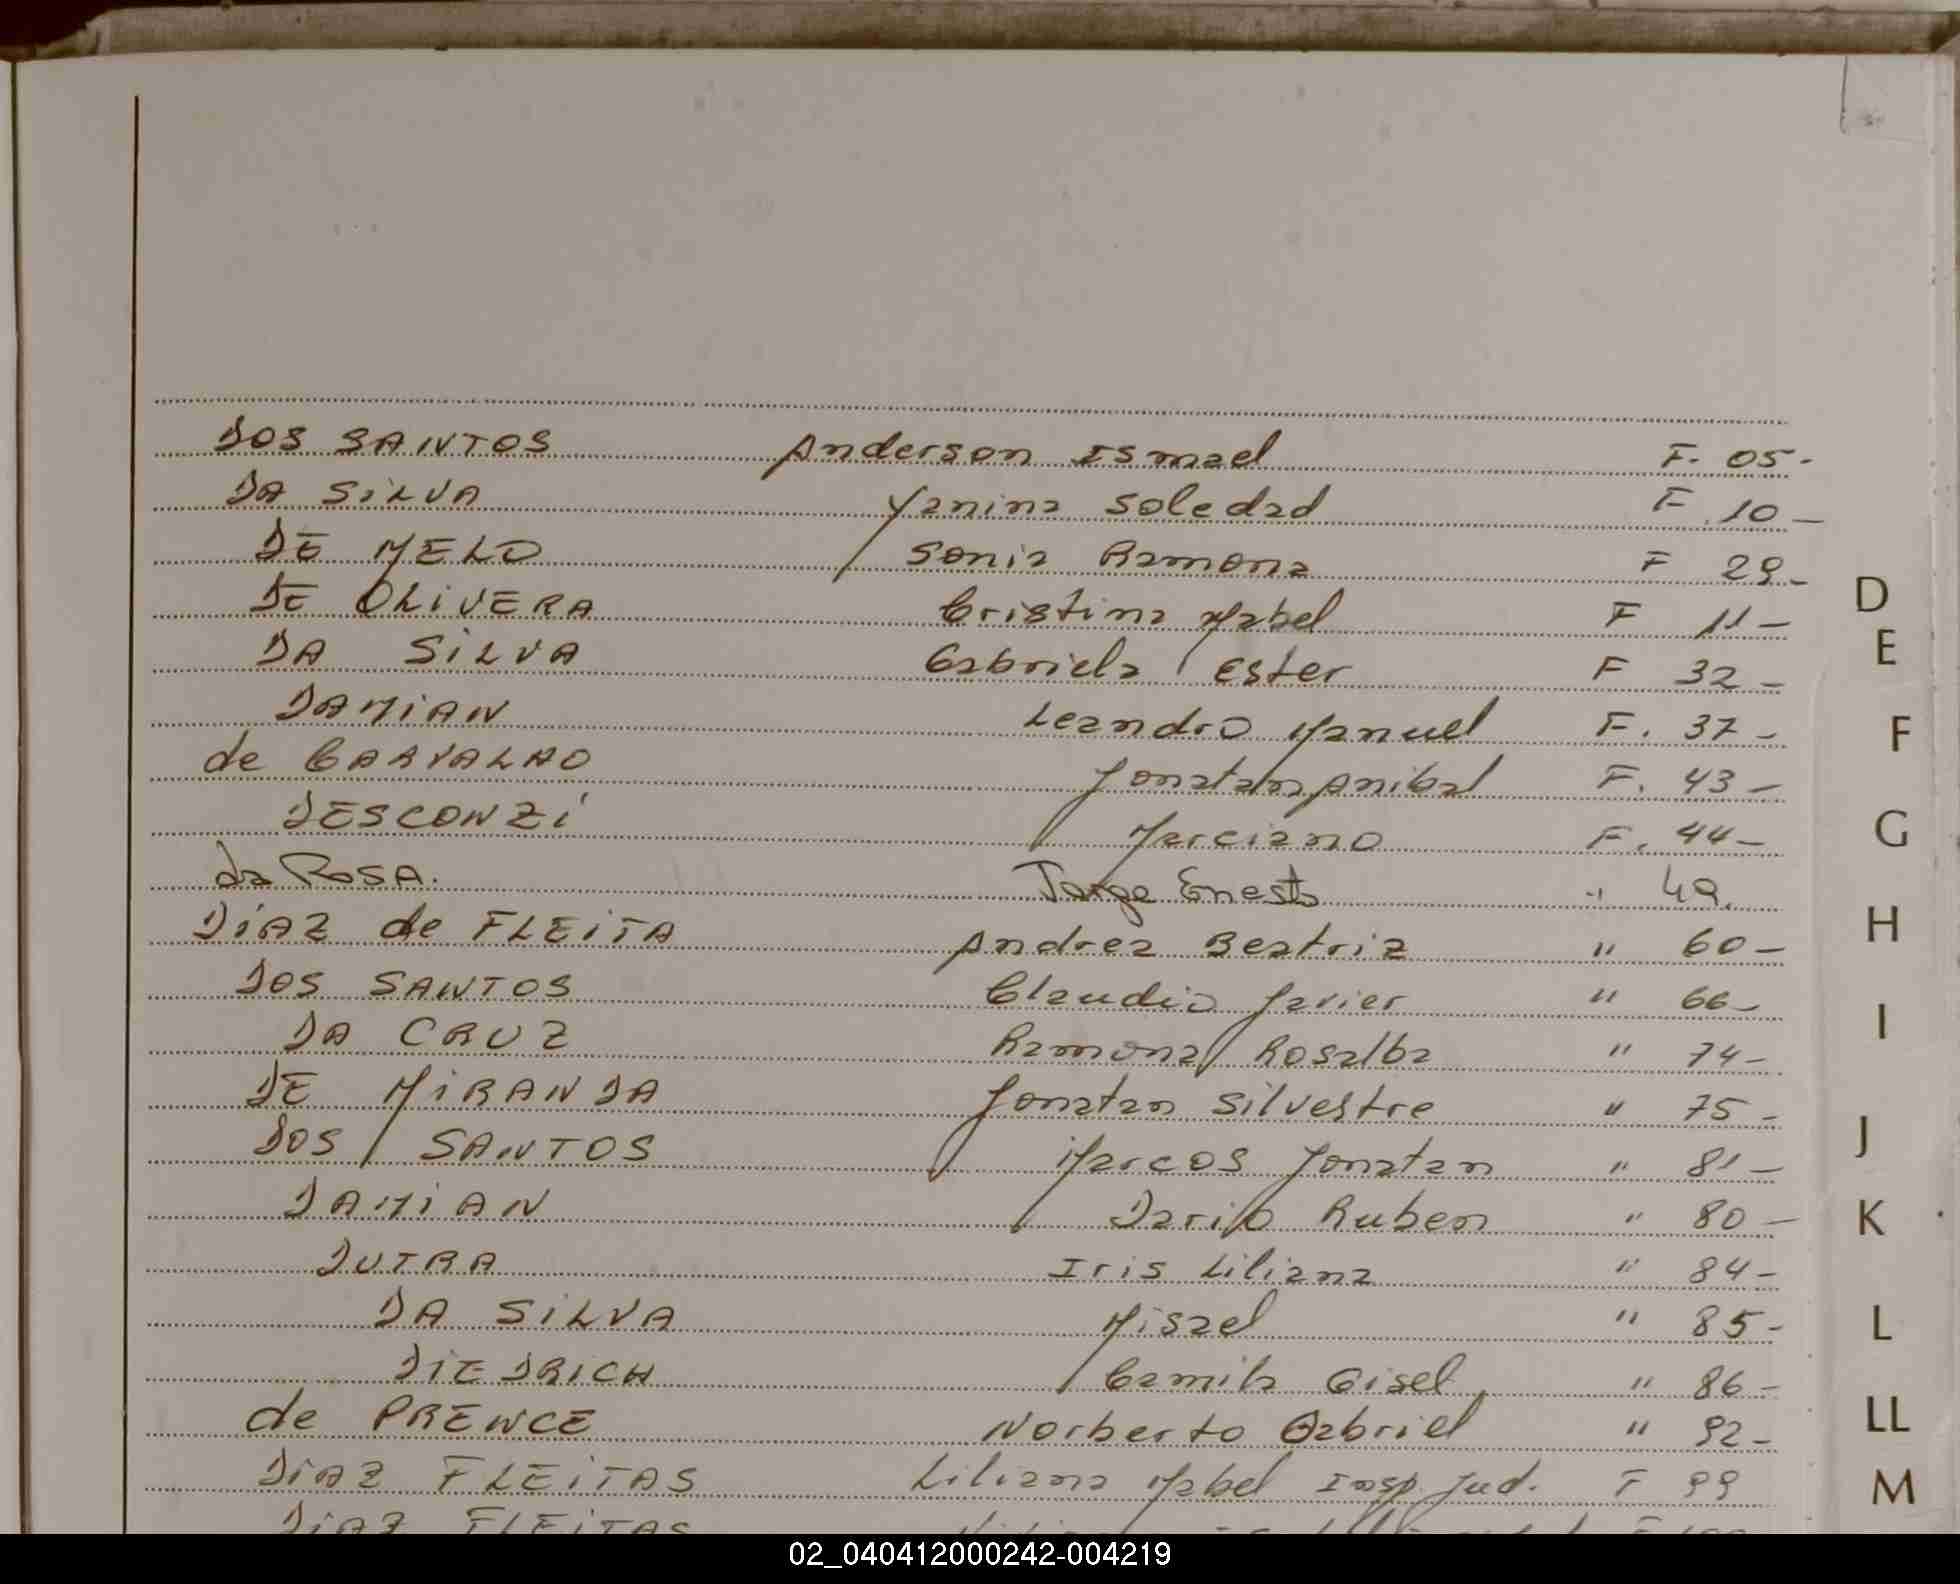 DOS SANTOS Anderson Ismael F. 05-
DA SILVA Yanina Soledad F 10-
DE MELO Sonia Ramona F 29-
DE OLIVERA Cristina Mabel F 11-
DA SILVA Gabriela Ester F 32-
DAMIAN Leandro Manuel F. 37-
de CARVALHO Jonatan Anibal F. 43-
DESCONZI Marciano F. 44-
da ROSA. Jorge Enesto " 49.
DIAZ de FLEITA Andrea Beatriz " 60-
DOS SANTOS Claudio Javier " 66-
DA CRUZ Ramona Rosalba " 74-
DE MIRANDA Jonatan Silvestre " 75-
DOS SANTOS Marcos Jonatan " 81-
DAMIAN Dario Ruben " 80-
DUTRA Iris Liliana " 84-
DA SILVA Misael " 85-
DIEDRICH Camila Gisel " 86-
de PRENCE Norberto Gabriel " 92-
DIAZ FLEITAS Liliana Mabel Insp. Jud. F 99
DIAZ FLEITAS
D
E
F
G
H
I
J
K
L
LL
M
02_040412000242-004219